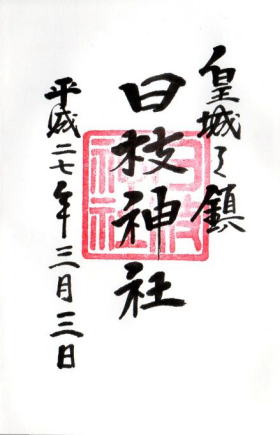 皇城之鎮
日枝神社
平成二七年三月三日
日枝神社